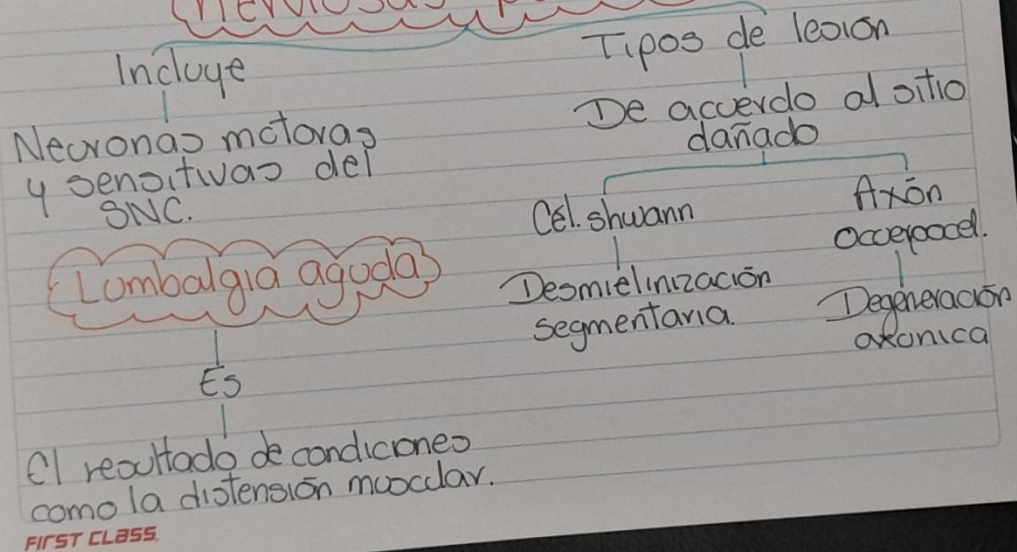 Incluye
Neuronas motoras
y sensitivas del
SNC.
Tipos de lesión
De acuerdo al sitio
dañado
Cél. shwann
Desmielinización
segmentaria.
Axón
o cuerpo cel.
Degeneración
axonica
Lumbalgia aguda
Es
El resultado de condiciones
como la distensión muscular.
FIRST CLASS.